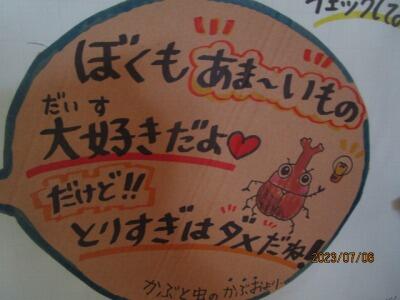 チェックしてね
ぼくも あま〜いもの
だいす
大好きだよ♥
だけど!!
とりすぎはダメだね!
2023/07/06
かぶと虫のかぶおより